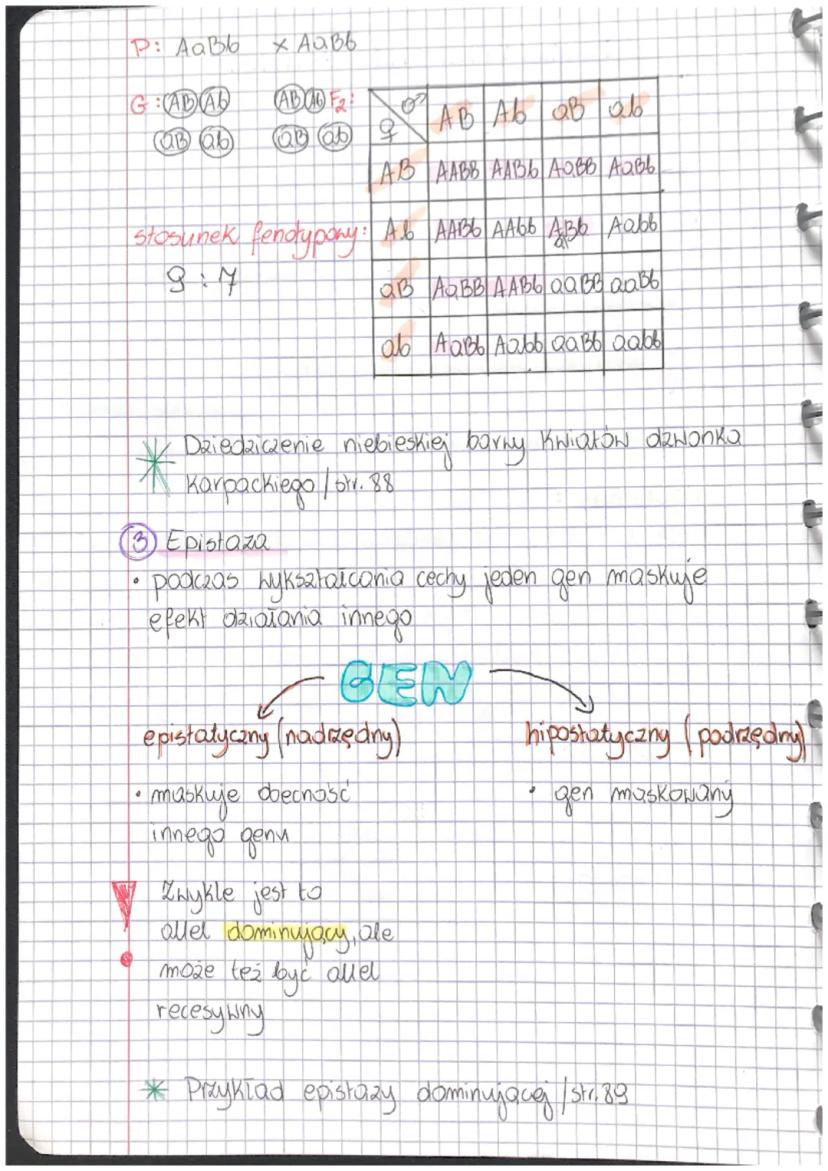 P: AaBb x AaBb
G: AB Ab AB Ab F2:
aB ab aB ab
♀ ♂ AB Ab aB ab
AB AABB AABb AaBB AaBb
Ab AABb AAbb ABb Aabb
aB AaBB AABb aaBB aaBb
ab AaBb Aabb aaBb aabb
stosunek fenotypowy:
9:7
* Dziedziczenie niebieskiej barwy kwiatów dzwonka
karpackiego / str. 88
3 Epistaza
• podczas wykształcania cechy jeden gen maskuje
efekt działania innego
GEN
epistatyczny (nadrzędny) hipostatyczny (podrzędny)
• maskuje obecność • gen maskowany
innego genu
! Zwykle jest to
allel dominujący, ale
może też być allel
recesywny
* Przykład epistazy dominującej / str. 89